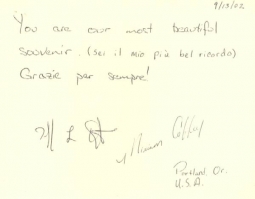 9/13/02
You are our most beautiful
souvenir. (sei il mio più bel ricordo)
Grazie par sempre!
Portland, Or.
U.S.A.